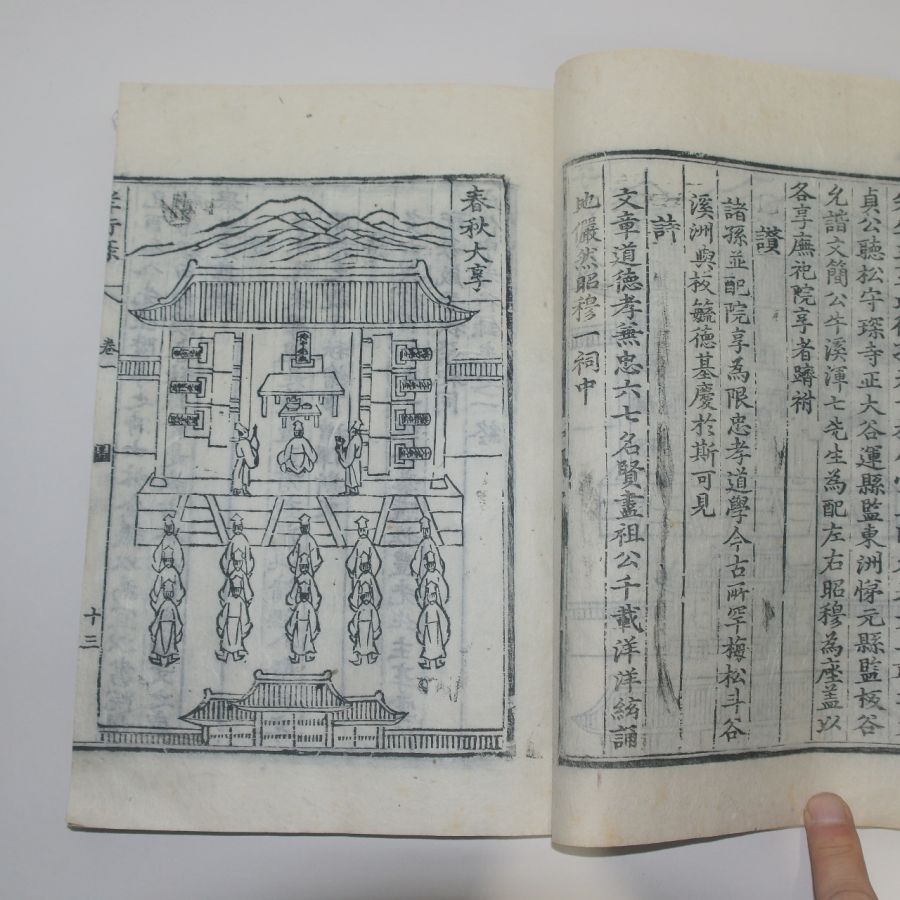 貞公聽松守琛寺正大谷運縣監東洲悌元縣監板谷
允諧文簡公牛溪渾七先生為配左右昭穆為座蓋以
各享廡祀院享者躋祔
讚
諸孫並配院享為限忠孝道學今古所罕梅松斗谷
溪洲與板毓德基慶於斯可見
詩
文章道德孝兼忠六七名賢盡祖公千載洋洋絃誦
地儼然昭穆一祠中
春秋大享
卷一
十三